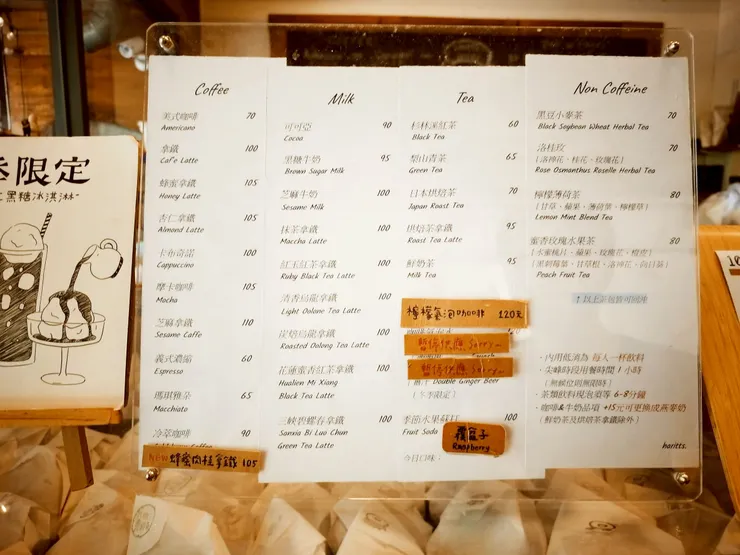 限定
黑糖冰淇淋
Coffee
美式咖啡 70
Americano
拿鐵 100
Cafe Latte
蜂蜜拿鐵 105
Honey Latte
杏仁拿鐵 105
Almond Latte
卡布奇諾 100
Cappuccino
摩卡咖啡 105
Mocha
芝麻拿鐵 110
Sesame Caffe
義式濃縮 60
Espresso
瑪琪雅朵 65
Macchiato
冷萃咖啡 90
Coffee
NEW 蜂蜜肉桂拿鐵 105
Milk
可可亞 90
Cocoa
黑糖牛奶 95
Brown Sugar Milk
芝麻牛奶 100
Sesame Milk
抹茶拿鐵 100
Maccha Latte
紅玉紅茶拿鐵 100
Ruby Black Tea Latte
清香烏龍拿鐵 100
Light Oolone Tea Latte
炭焙烏龍拿鐵 100
Roasted Oolong Tea Latte
花蓮蜜香紅茶拿鐵 100
Hualien Mi Xiang
Black Tea Latte
三峽碧螺春拿鐵 100
Sanxia Bi Luo Chun
Green Tea Latte
Tea
杉林溪紅茶 60
Black Tea
梨山青茶 65
Green Tea
日本烘焙茶 70
Japan Roast Tea
烘焙茶拿鐵 95
Roast Tea Latte
鮮奶茶 95
Milk Tea
檸檬氣泡咖啡 120元
暫停供應 Sorry
暫停供應 Sorry
Double Ginger Beer
(冬季限定)
季節水果蘇打 100
Fruit Soda
覆盆子
Raspberry
今日口味:
Non Coffeine
黑豆小麥茶 70
Black Soybean Wheat Herbal Tea
洛桂玫 70
[洛神花、桂花、玫瑰花]
Rose Osmanthus Roselle Herbal Tea
檸檬薄荷茶 80
[甘草、蘋果、薄荷葉、檸檬草]
Lemon Mint Blend Tea
蜜香玫瑰水果茶 80
[水蜜桃片、蘋果、玫瑰花、橙皮]
[黑刺莓葉、甘草根、洛神花、向日葵]
Peach Fruit Tea
↑以上茶包皆可回沖
·內用低消為 每人一杯飲料
·尖峰時段用餐時間1小時
(無候位則無限時)
·茶類飲料現泡需等 6-8分鐘
·咖啡&牛奶品項 +15元可更換成燕麥奶
(鮮奶茶及烘焙茶拿鐵除外)
baritts.